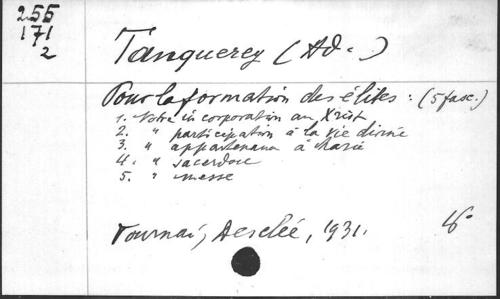 255
171
2
Tanquerey (Ad.)
Pour la formation des élites : (5 fasc.)
1. Notre incorporation au Xrist
2. " participation à la vie divine
3. " appartenance à Marie
4. " sacerdoce
5. " messe
Tournai, Desclée, 1931.